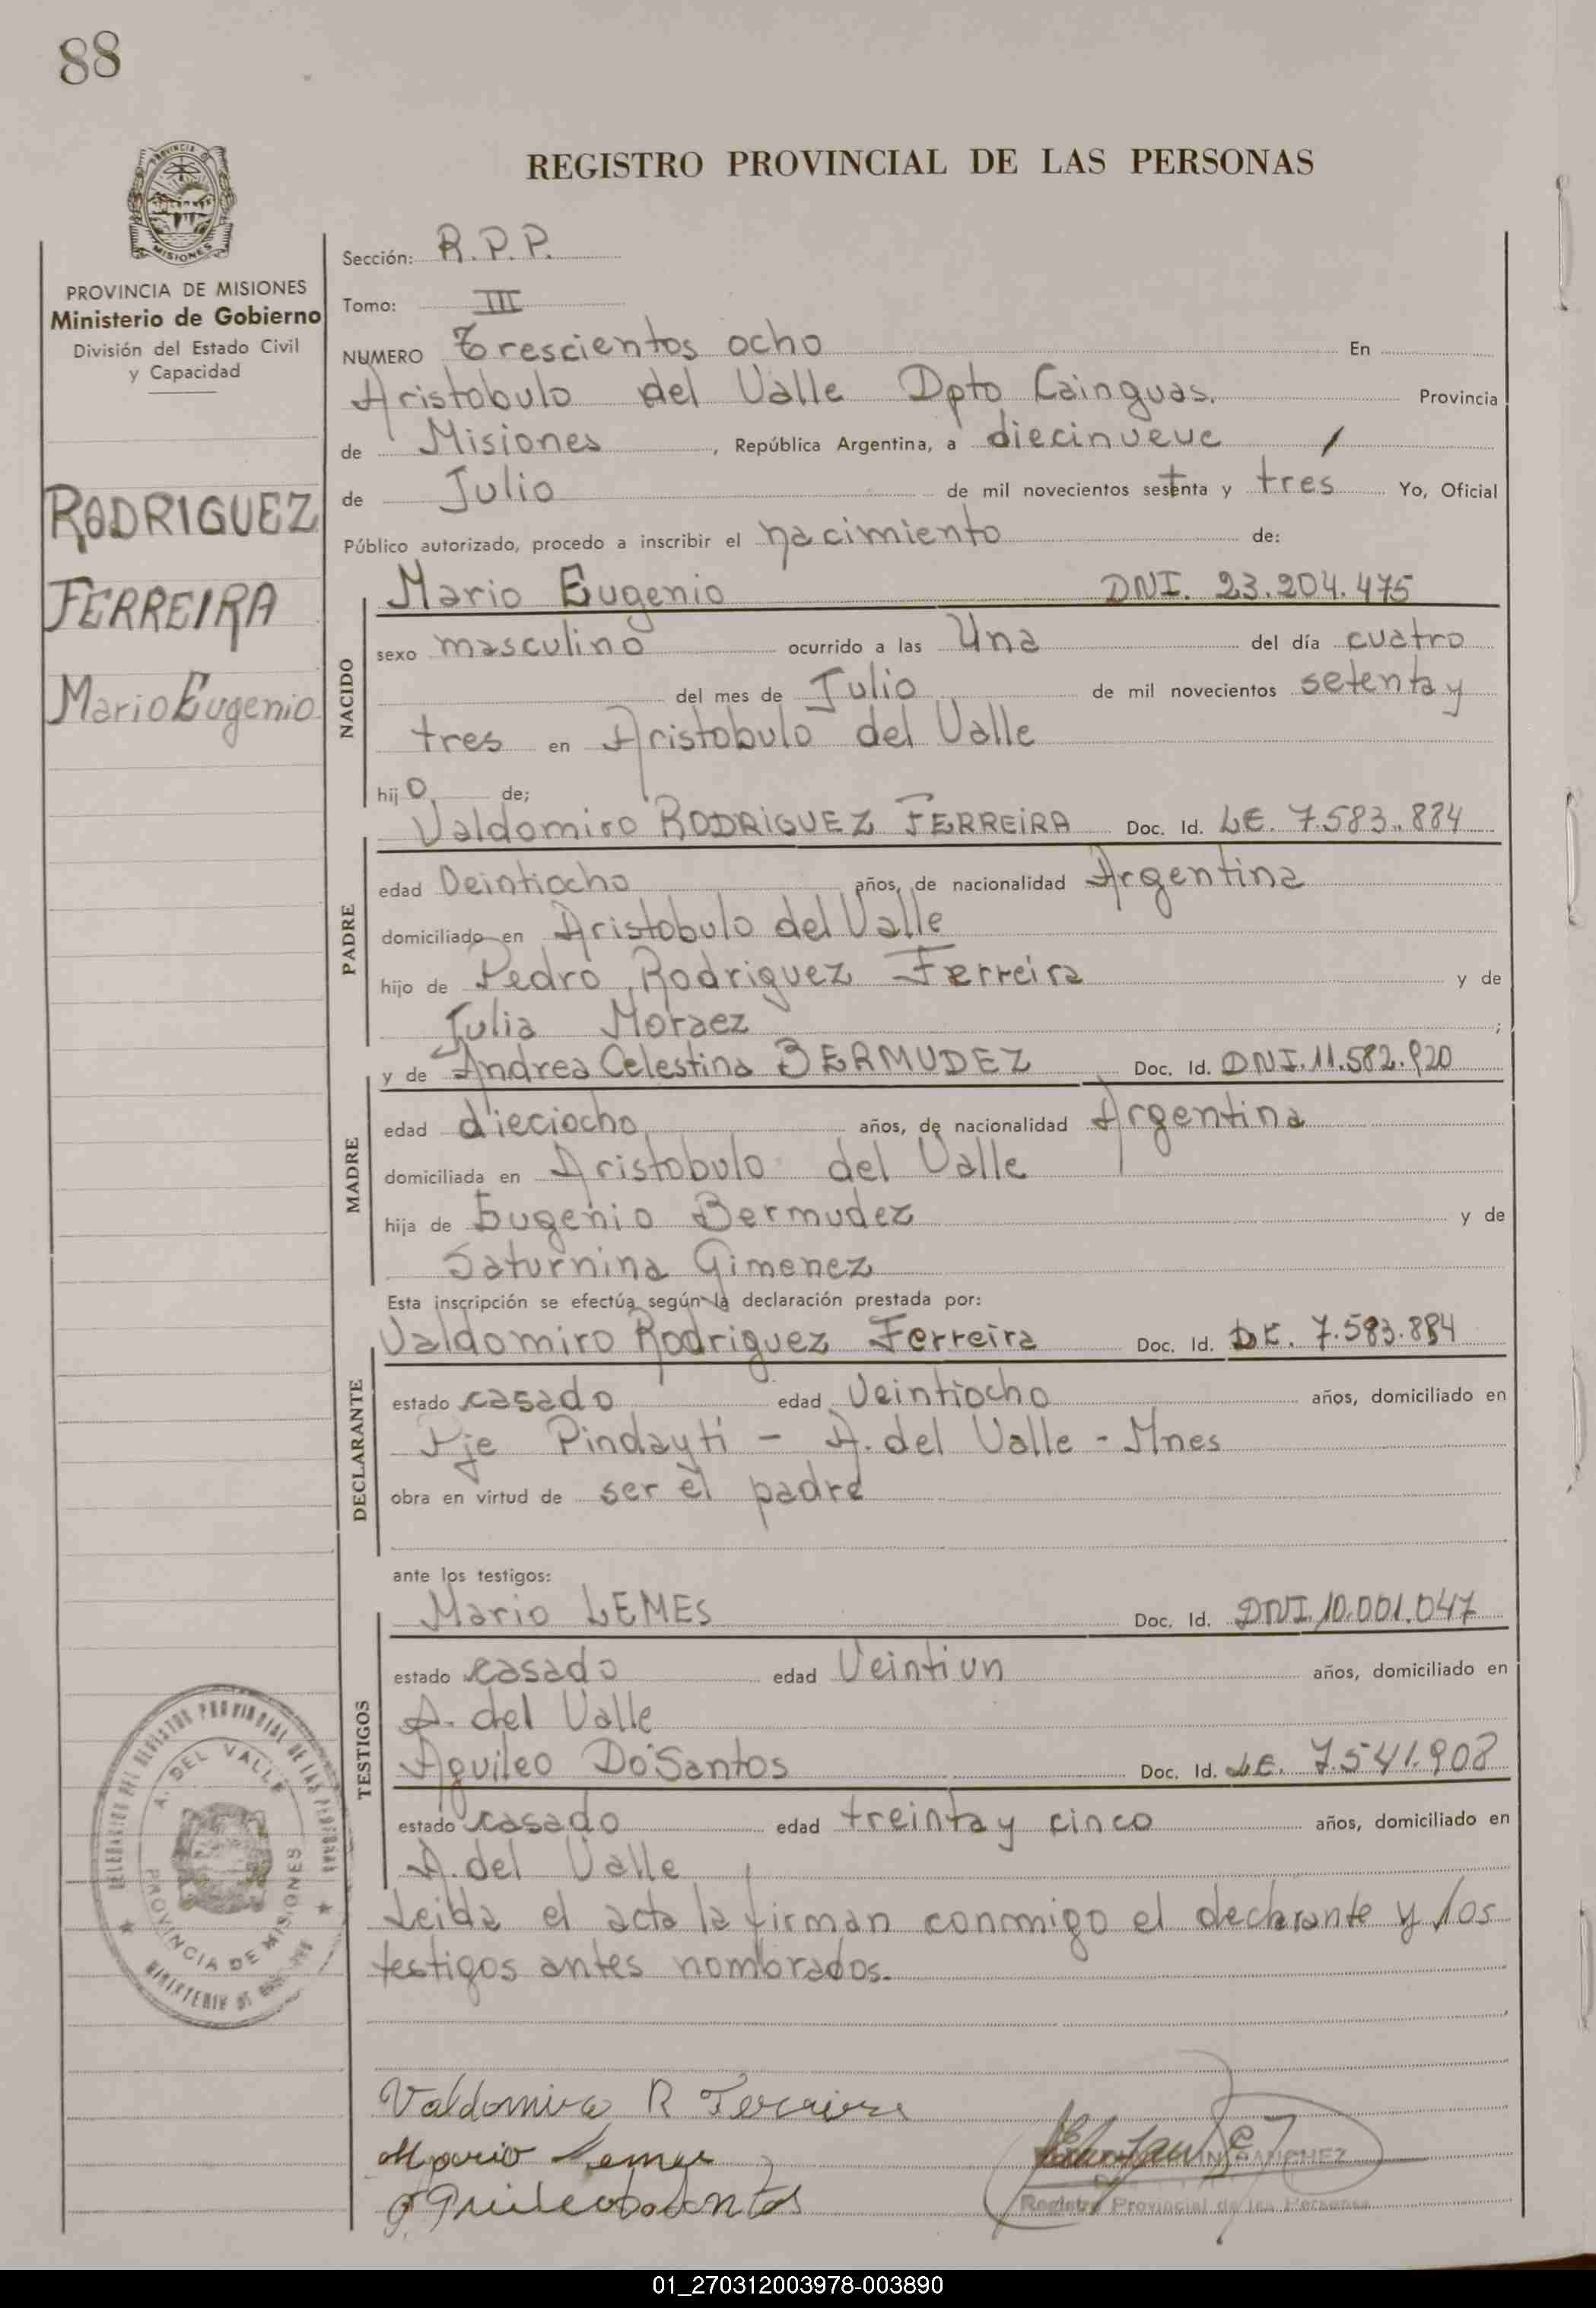 88
REGISTRO PROVINCIAL DE LAS PERSONAS
PROVINCIA DE MISIONES
Ministerio de Gobierno
División del Estado Civil
y Capacidad
RODRIGUEZ
FERREIRA
Mario Eugenio
Sección: R.P.P.
Tomo: III
NUMERO Trescientos ocho En
Aristobulo del Valle Dpto Cainguas. Provincia
de Misiones, República Argentina, a diecinueve
de Julio de mil novecientos setenta y tres Yo, Oficial
Público autorizado, procedo a inscribir el nacimiento de:
NACIDO
Mario Eugenio DNI. 23.204.475
sexo masculino ocurrido a las Una del día cuatro
del mes de Julio de mil novecientos setenta y
tres en Aristobulo del Valle
hijo de;
PADRE
Valdomiro RODRIGUEZ FERREIRA Doc. Id. LE. 7.583.884
edad Veintiocho años, de nacionalidad Argentina
domiciliado en Aristobulo del Valle
hijo de Pedro Rodriguez Ferreira y de
Julia Moraez;
MADRE
y de Andrea Celestina BERMUDEZ Doc. Id. DNI. 11.582.920
edad dieciocho años, de nacionalidad Argentina
domiciliada en Aristobulo del Valle
hija de Eugenio Bermudez y de
Saturnina Gimenez
Esta inscripción se efectúa según la declaración prestada por:
DECLARANTE
Valdomiro Rodriguez Ferreira Doc. Id. 7.583.884
estado casado edad Veintiocho años, domiciliado en
Pje Pindayti - A. del Valle - Mnes
obra en virtud de ser el padre
ante los testigos:
TESTIGOS
Mario LEMES Doc. Id. DNI. 10.001.047
estado casado edad Veintiun años, domiciliado en
A. del Valle
Aguileo Do Santos Doc. Id. LE. 7.541.908
estado casado edad treinta y cinco años, domiciliado en
A. del Valle
Leida el acta la firman conmigo el declarante y los
testigos antes nombrados.
DEL REGISTRO PROVINCIAL DE LAS PERSONAS
A. DEL VALLE
PROVINCIA DE MISIONES
MINISTERIO DE
Valdomiro R Ferreira
Mario Lemes
SANCHEZ
Registro Provincial de las Personas
01_270312003978-003890